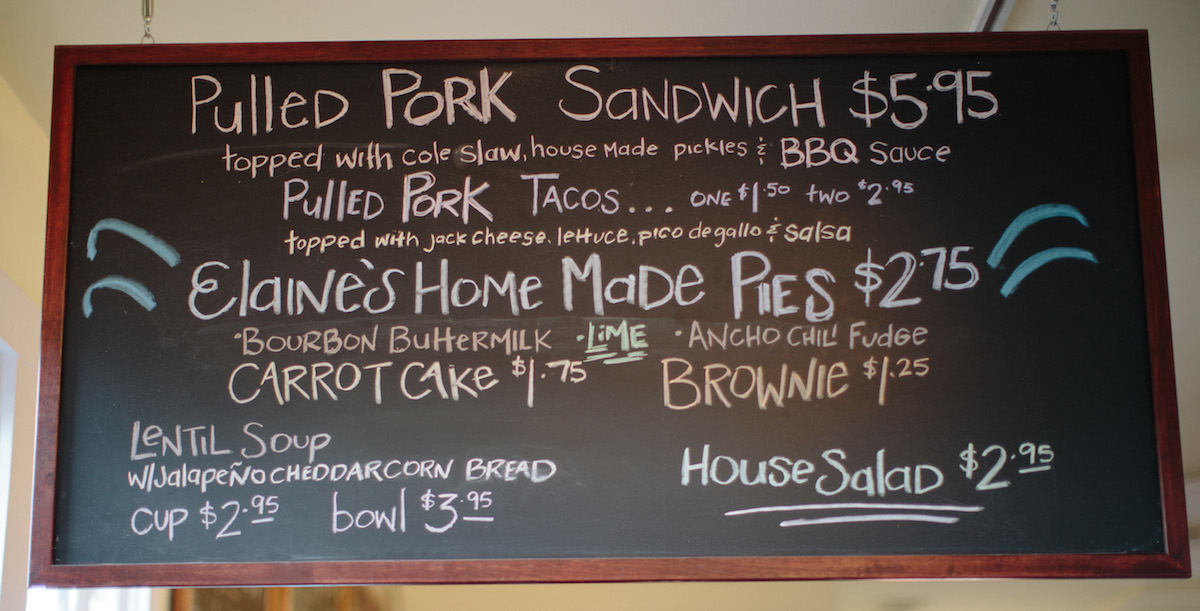 Pulled PORK SANDWICH $5.95
topped with cole slaw, house made pickles & BBQ Sauce
PULLED PORK TACOS... ONE $1.50 two $2.95
topped with jack cheese, lettuce, pico de gallo & salsa
Elaine's Home Made Pies $2.75
•BOURBON BUttERMILK •LiME •ANCHO CHILI Fudge
CARROT CAKe $1.75 BROWNIE $1.25
LeNTIL Soup
w/JalapeÑo CHEDDAR CORN BREAD
cup $2.95 bowl $3.95
House Salad $2.95